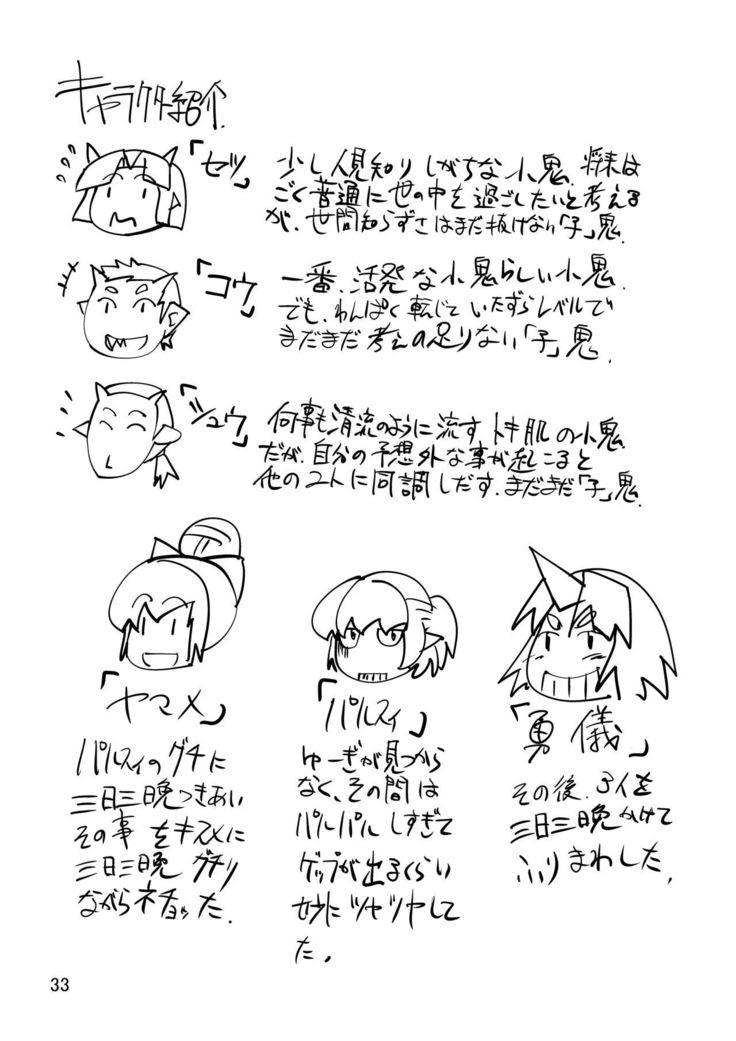 キャラクター紹介
「セツ」
少し人見知りしがちな小鬼、将来は
ごく普通に世の中を過ごしたいと考える
が、世間知らずさはまだ抜けない「子」鬼
「コウ」
一番、活発な小鬼らしい小鬼
でも、わんぱく転じていたずらレベルで
まだまだ考えの足りない「子」鬼
「シュウ」
何事も清流のように流す トキ肌の小鬼
だが、自分の予想外な事が起こると
他の2人に同調しだす、まだまだ「子」鬼
「ヤマメ」
パルスィのグチに
三日三晩つきあい
その事をキスメに
三日三晩 グチり
ながらネチョッた。
「パルスィ」
ゆーぎが見つから
なく、その間は
パルパルしすぎて
ゲップが出るくらい
妙にツヤツヤして
た。
「勇儀」
その後、3人を
三日三晩かけて
ふりまわした。
33